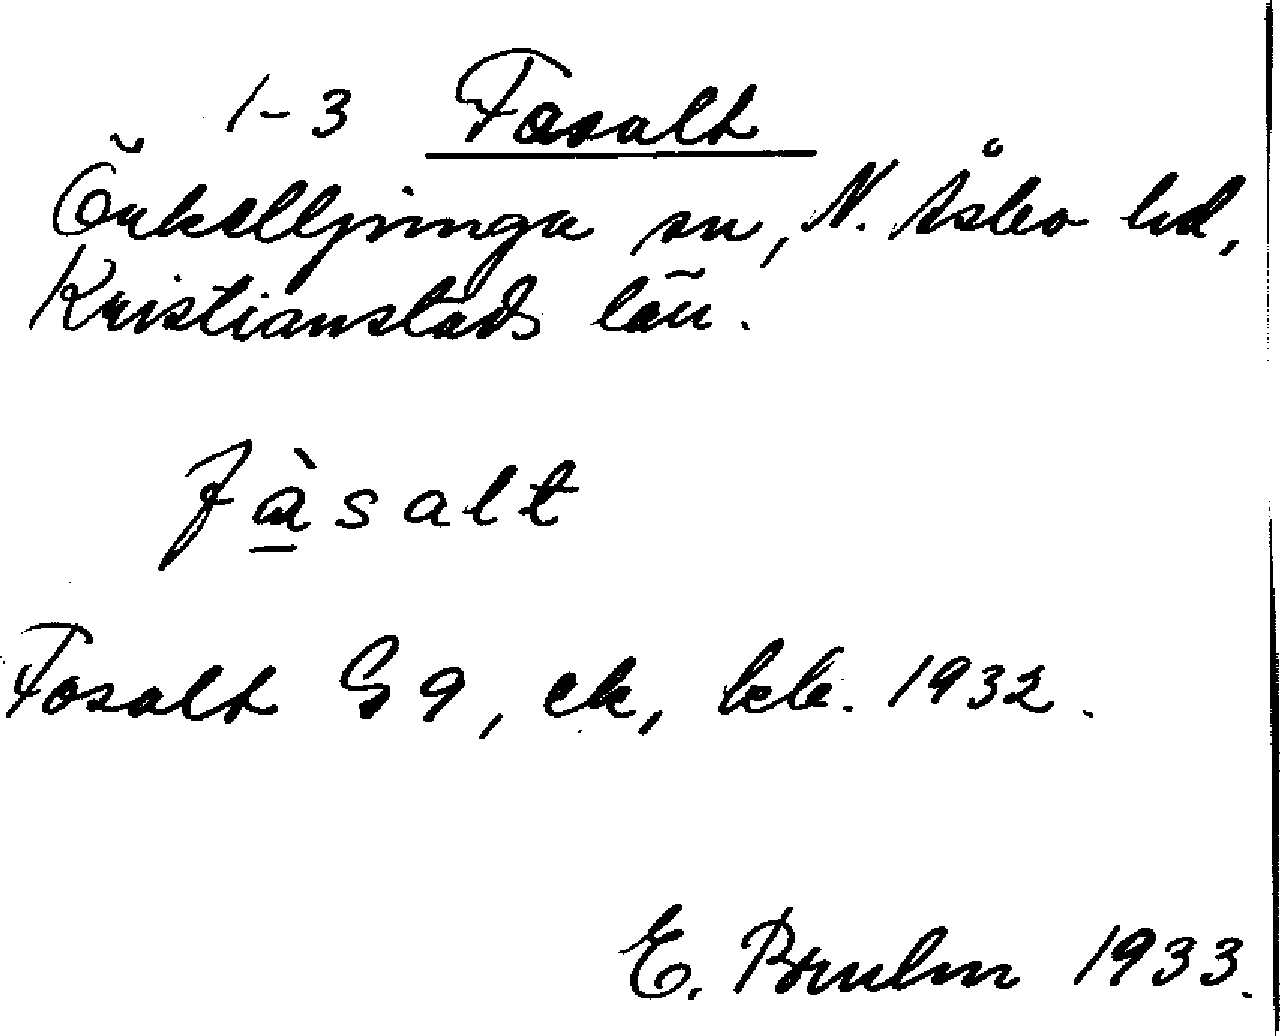 1-3 Fosalt
Örkelljunga sn, N. Åsbo hd,
Kristianstads län.
fàsalt
Fosalt G 9, ek, kbl. 1932.
E. Bruhn 1933.